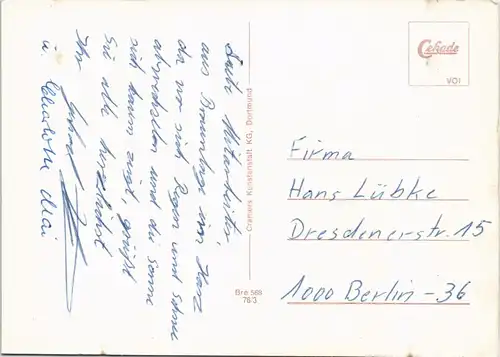 Liebe Mitarbeiter,
aus Braunlage im Harz
da wo sich Regen und Schnee
abwechseln und die Sonne
sich kaum zeigt, grüßt
Sie alle herzlichst
Ihr
u. Charlotte Mai
Cramers Kunstanstalt KG, Dortmund
Bre 568
76/3
Cekade
VOI
Firma
Hans Lübke
Dresdenerstr. 15
1000 Berlin - 36